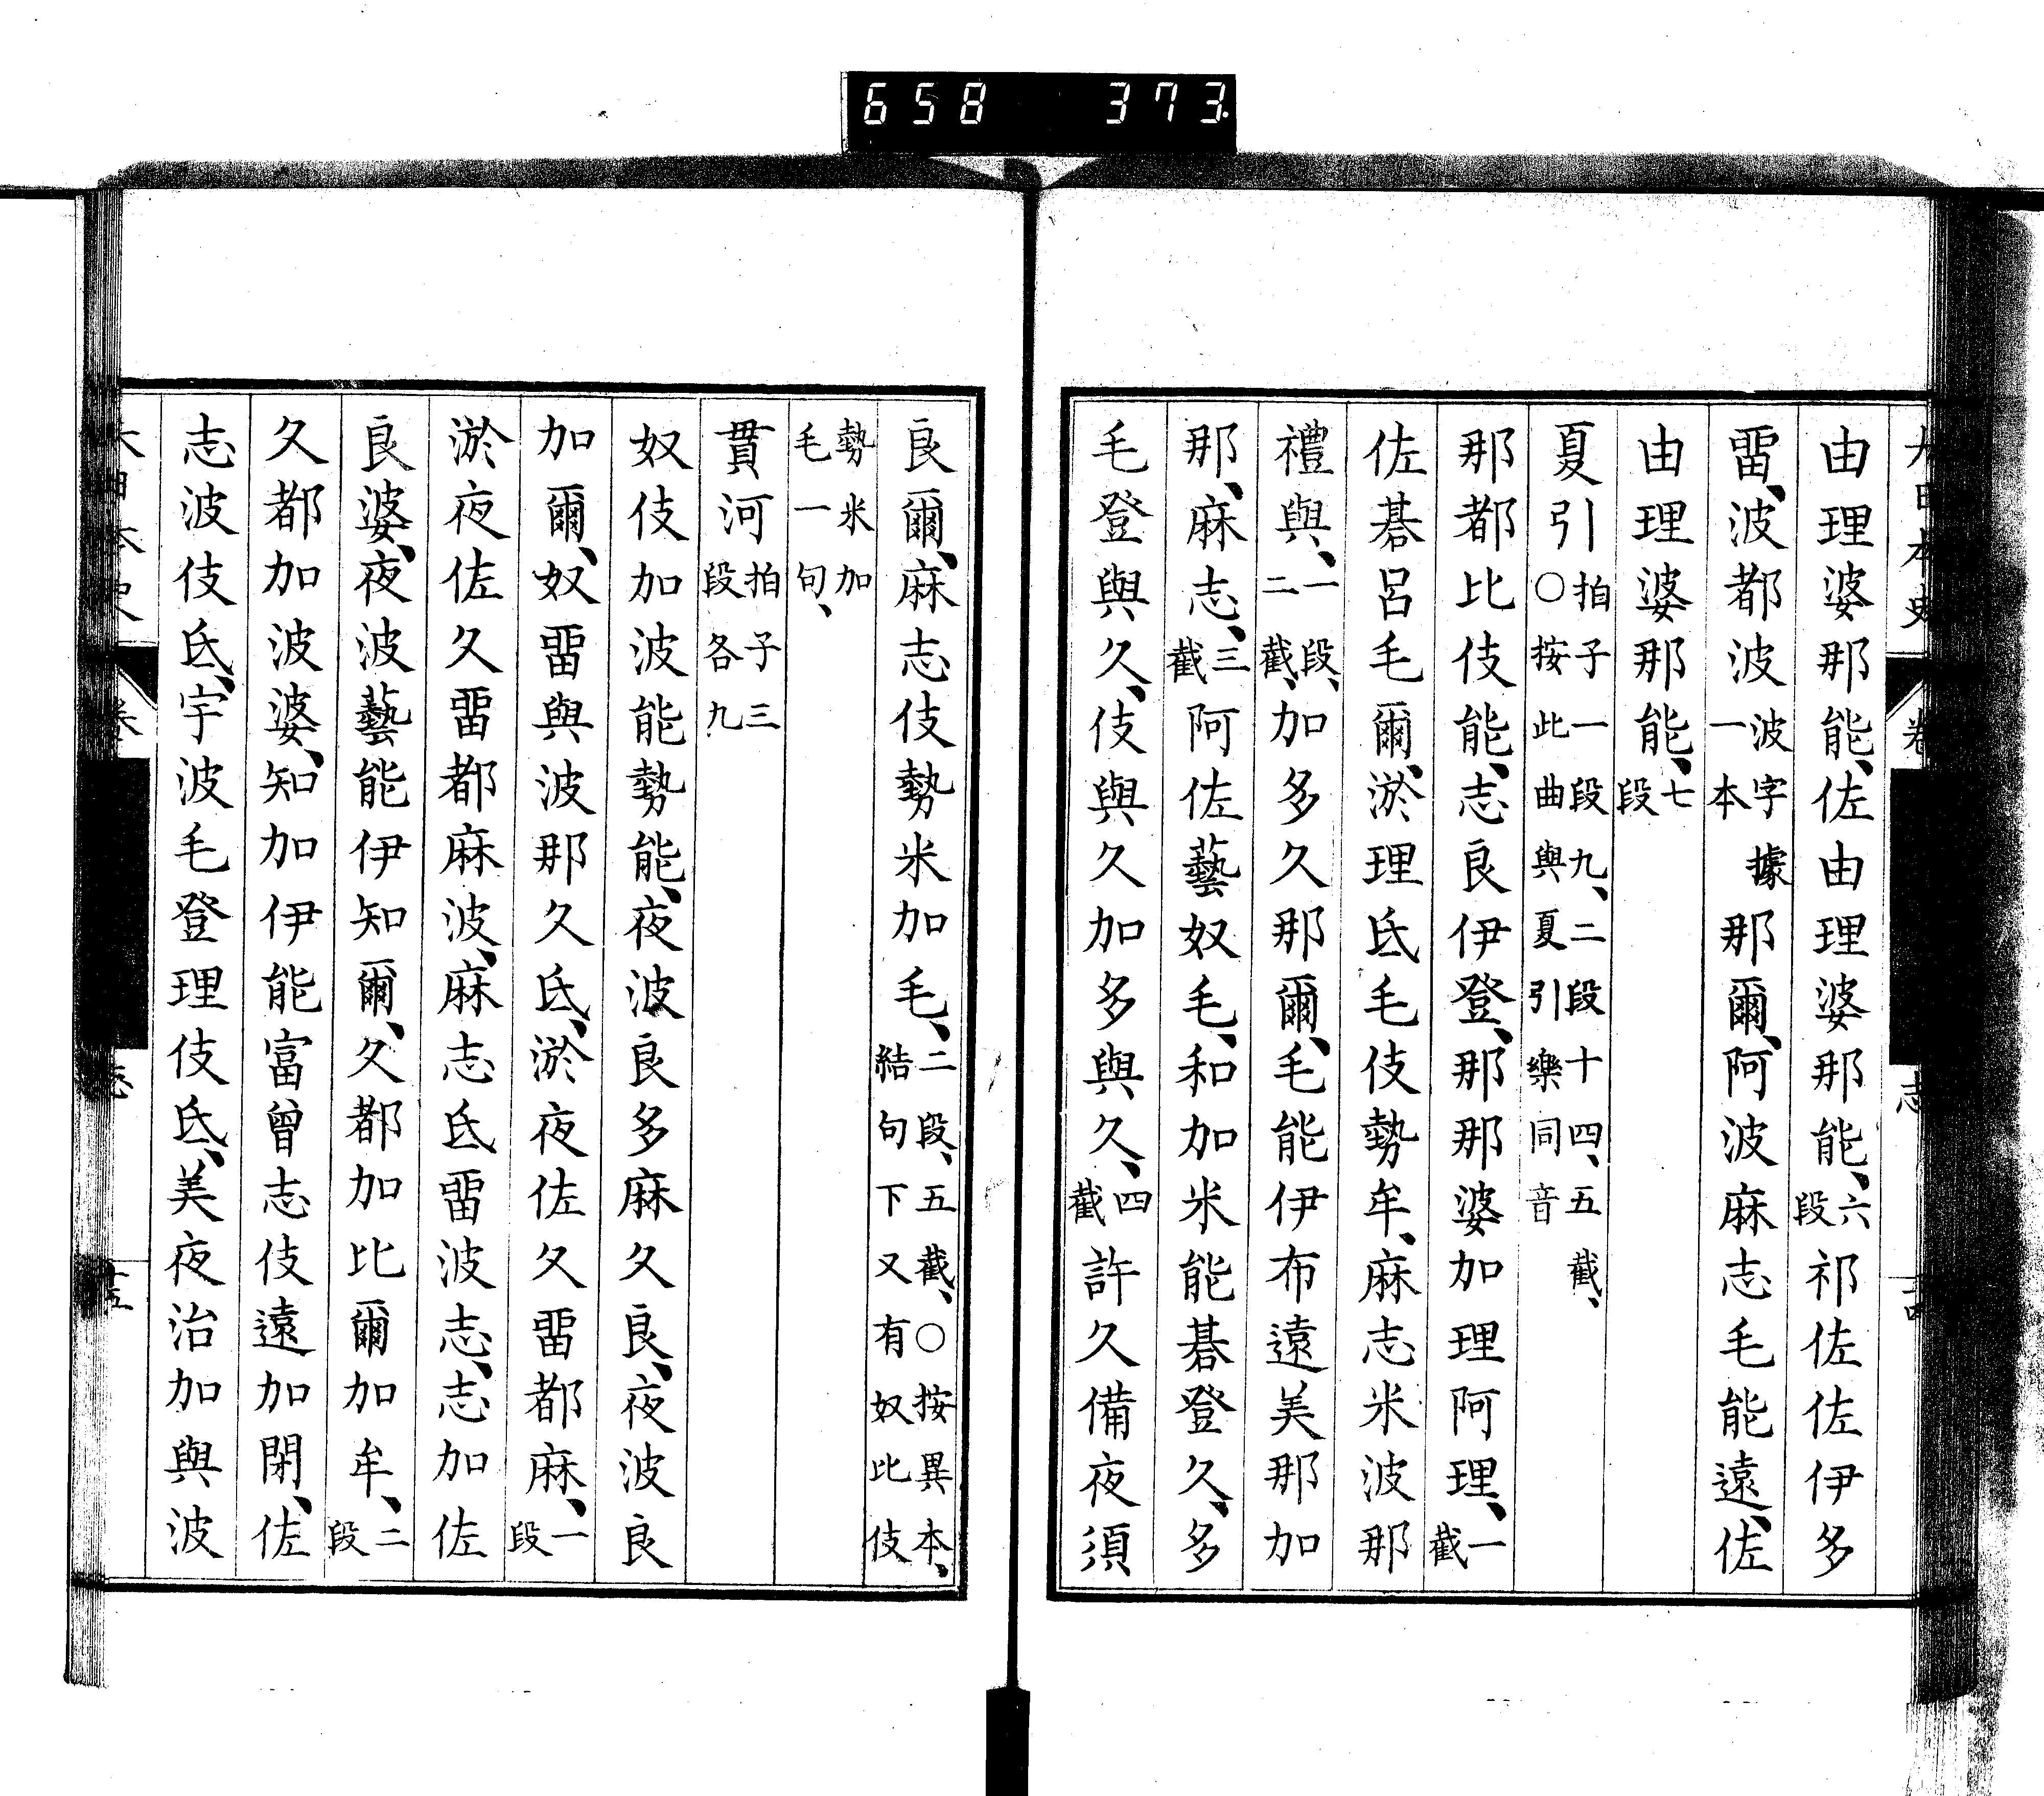 658 373
大日本史 卷 志
由理婆那能、佐由理婆那能、六段祁佐佐伊多
畱、波都波波字據一本那爾、阿波麻志毛能遠、佐
由理婆那能、七段
夏引拍子一段九、二段十四、五截、○按此曲與夏引樂同音
那都比伎能、志良伊登、那那婆加理阿理、一截
佐碁呂毛爾、淤理氐毛伎勢牟、麻志米波那
禮與、一段、二截、加多久那爾、毛能伊布遠美那加
那、麻志、三截阿佐藝奴毛、和加米能碁登久、多
毛登與久、伎與久加多與久、四截許久備夜須
良爾、麻志伎勢米加毛、二段、五截、○按異本、結句下又有奴比伎
勢米加毛一句、
貫河拍子三段各九
奴伎加波能勢能、夜波良多麻久良、夜波良
加爾、奴畱與波那久氐、淤夜佐久畱都麻、一段
淤夜佐久畱都麻波、麻志氐畱波志、志加佐
良婆、夜波藝能伊知爾、久都加比爾加牟、二段
久都加波婆、知加伊能富曾志伎遠加閇、佐
志波伎氐、宇波毛登理伎氐、美夜治加與波
大日本史 卷 志 十五